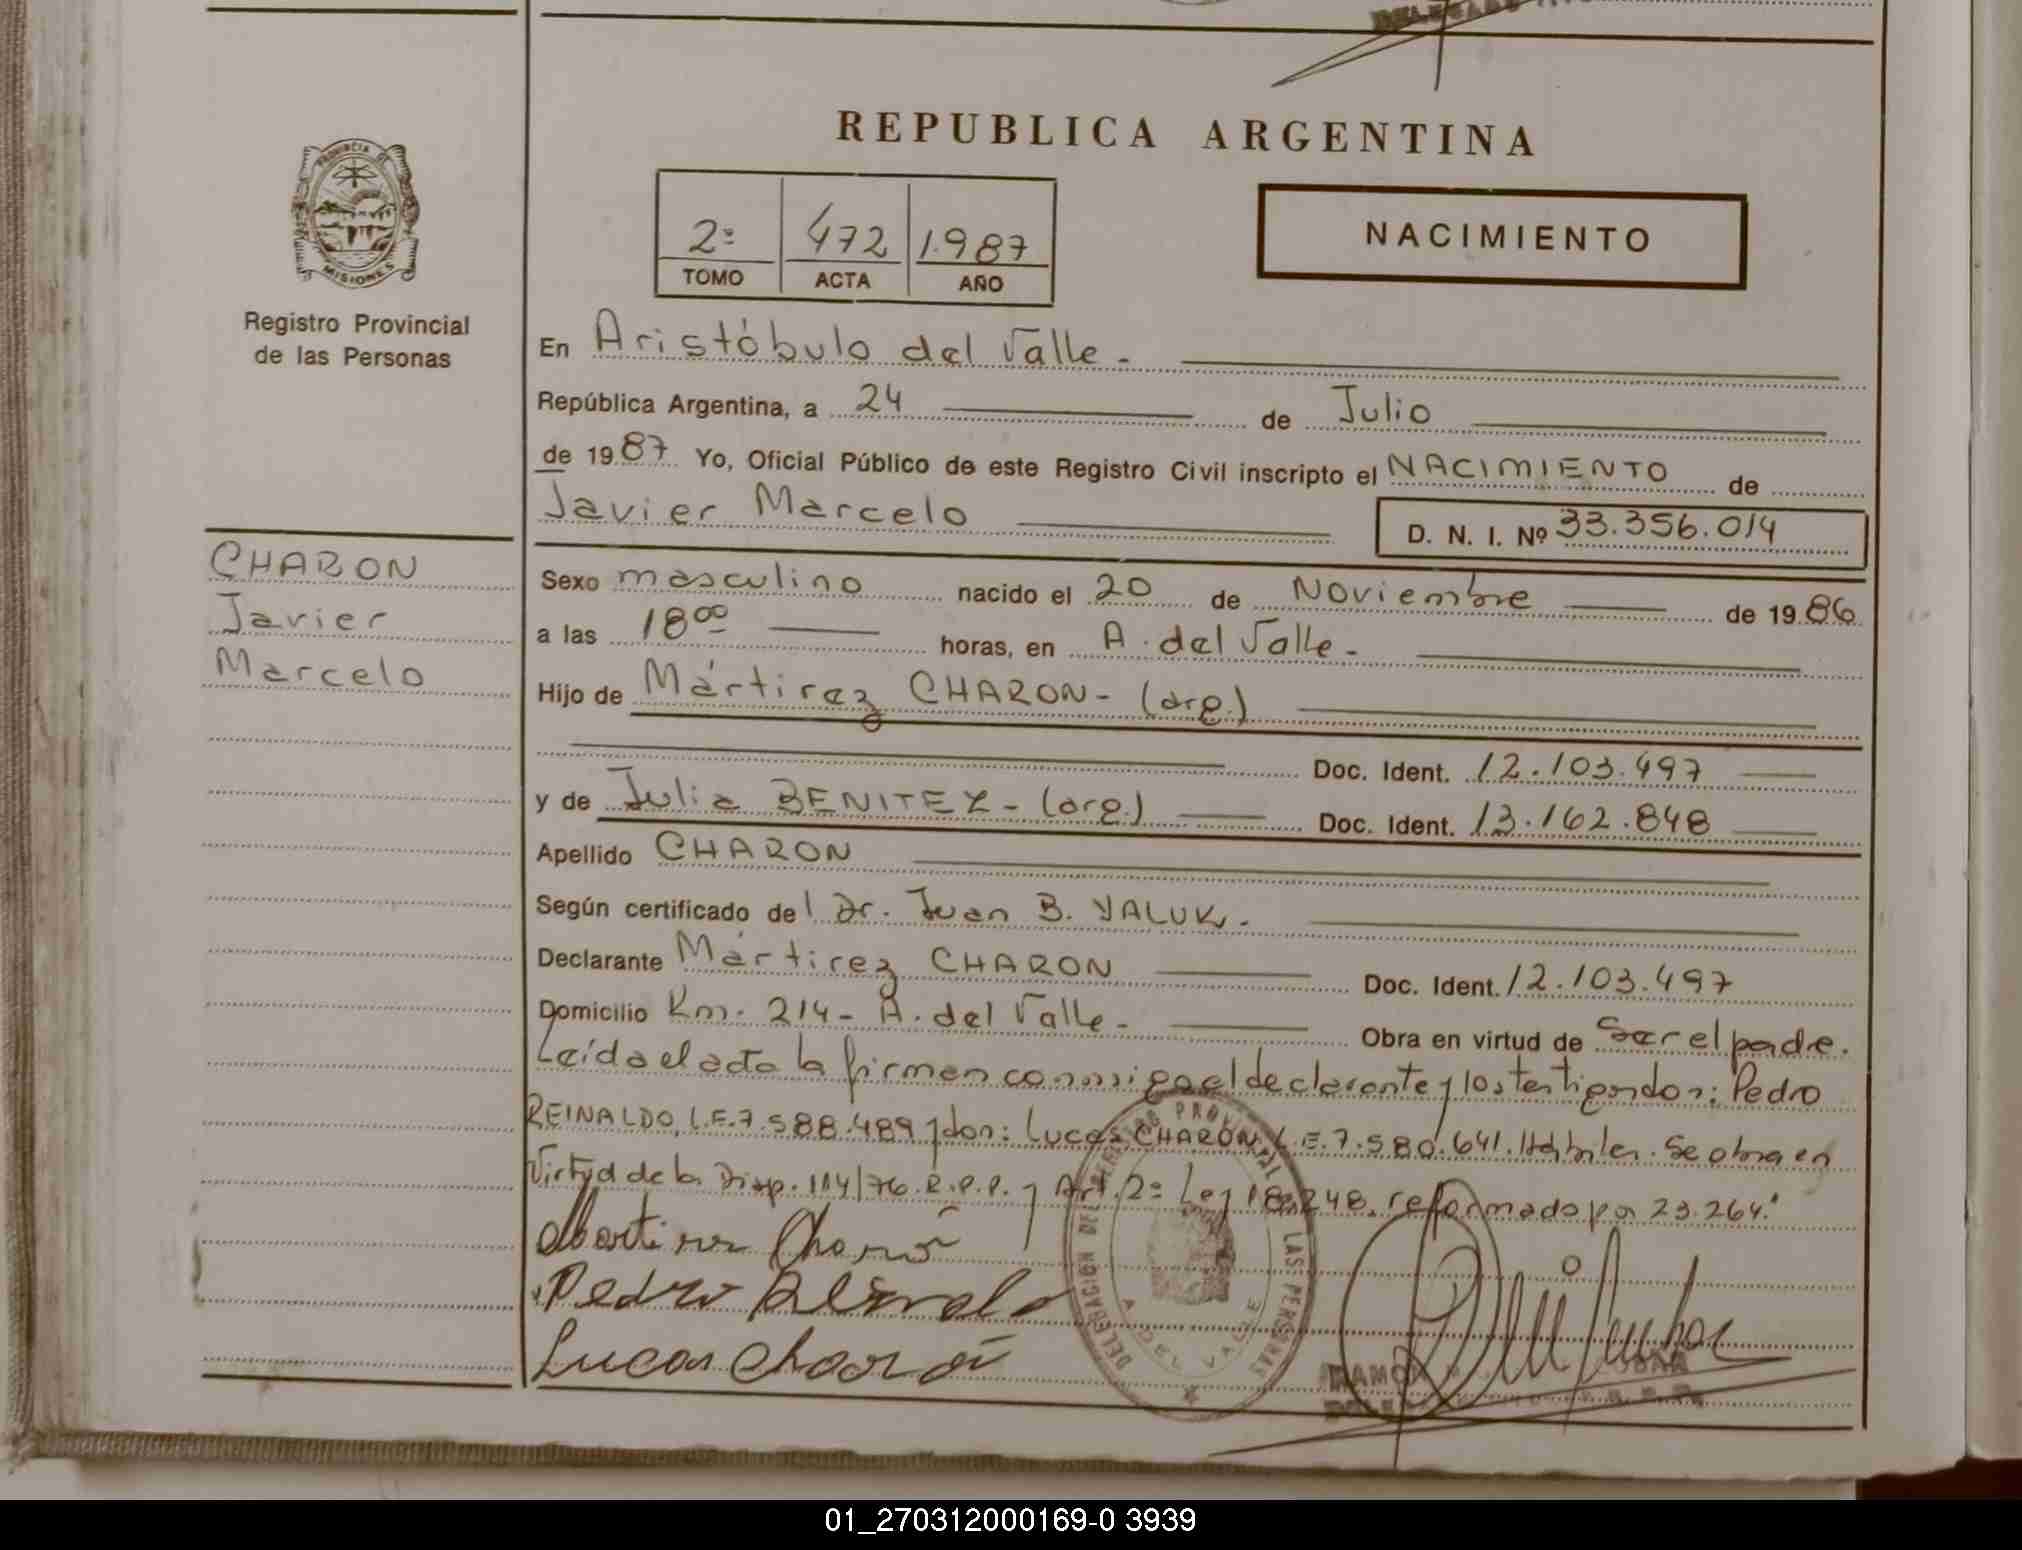 REPUBLICA ARGENTINA
PROVINCIA DE
MISIONES
Registro Provincial
de las Personas
2º 472 1.987
TOMO ACTA AÑO
NACIMIENTO
En Aristóbulo del Valle.
República Argentina, a 24 de Julio
de 1987 Yo, Oficial Público de este Registro Civil inscripto el NACIMIENTO de
Javier Marcelo D. N. I. Nº 33.356.014
CHARON
Javier
Marcelo
Sexo masculino nacido el 20 de Noviembre de 1986
a las 18⁰⁰ horas, en A. del Valle.
Hijo de Mártirez CHARON- (arg.)
Doc. Ident. 12.103.497
y de Julia BENITEZ - (arg.) Doc. Ident. 13.162.848
Apellido CHARON
Según certificado del Dr. Juan B. YALUK.
Declarante Mártirez CHARON Doc. Ident. 12.103.497
Domicilio Km. 214- A. del Valle. Obra en virtud de Ser el padre.
Leída el acta la firman conmigo el declarante y los testigos don: Pedro
REINALDO, L.E.7.588.489 y don: Lucas CHARON, L.E.7.580.641. Hábiles. Se obra en
Virtud de la Disp. 114/76. R.P.P. y Art. 2º Ley 18.248, reformado por 23.264.
Martires Charon
Pedro Reinaldo
Lucas Charon
DELEGACION DEL REGISTRO PROVINCIAL DE LAS PERSONAS
A. DEL VALLE
01_270312000169-0 3939